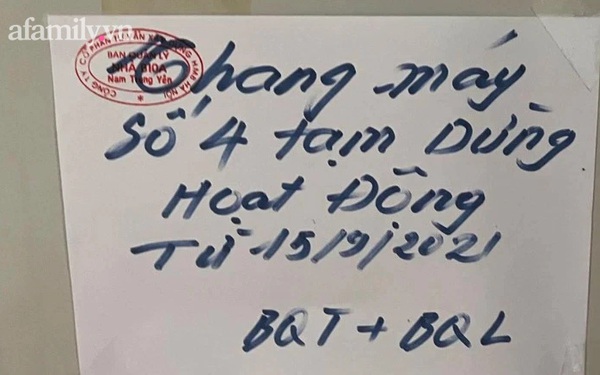 afamily.vn
CÔNG TY CỔ PHẦN TƯ VẤN
BAN QUẢN LÝ
NHÀ B10A
Nam Trung Yên
Thang máy
Số 4 tạm Dừng
Hoạt Động
Từ 15/9/2021
BQT + BQL